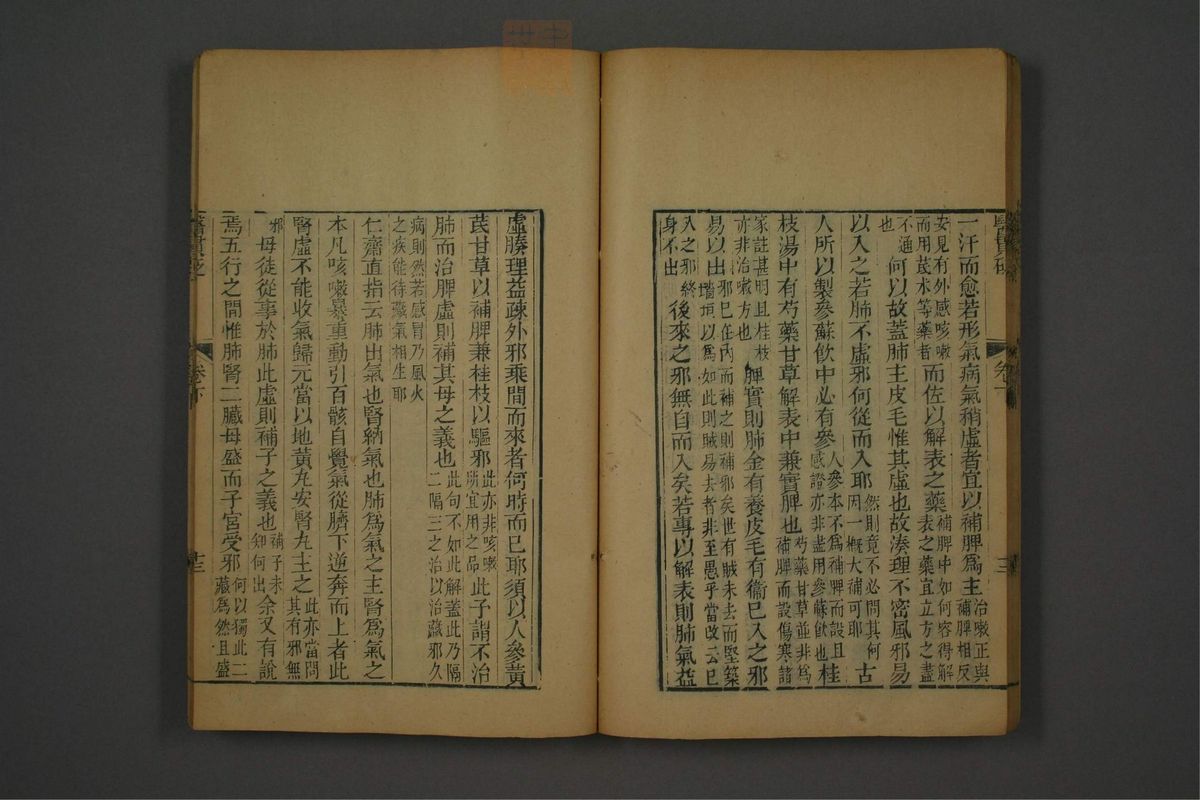 醫貫砭
卷下
一汗而愈若形氣病氣稍虛者宜以補脾爲主治嗽正與補脾相反
安見有外感咳嗽而用茂朮等藥者而佐以解表之藥補脾中如何容得解表之藥宜立方之盡
不通也何以故蓋肺主皮毛惟其虛也故湊理不密風邪易
以入之若肺不虛邪何從而入耶然則竟不必問其何因一槪大補可耶古
人所以製參蘇飮中必有參人參本不爲補脾而設且感證亦非盡用參蘇飮也桂
枝湯中有芍藥甘草解表中兼實脾也芍藥甘草並非爲補脾而設傷寒諸
家註甚明且桂枝亦非治嗽方也脾實則肺金有養皮毛有衞已入之邪
易以出邪已在內而補之則補邪矣世有賊未去而堅築墻垣以爲如此則賊易去者非至愚乎當改云已
入之邪終身不出後來之邪無自而入矣若專以解表則肺氣益
虛腠理益疎外邪乘間而來者何時而已耶須以人參黃
芪甘草以補脾兼桂枝以驅邪此亦非咳嗽所宜用之品此子謂不治
肺而治脾虛則補其母之義也此句不如此解蓋此乃隔二隔三之治以治藏邪久
病則然若感冒乃風火之疾能待藏氣相生耶
仁齋直指云肺出氣也腎納氣也肺爲氣之主腎爲氣之
本凡咳嗽暴重動引百骸自覺氣從臍下逆奔而上者此
腎虛不能收氣歸元當以地黃丸安腎丸主之此亦當問其有邪無
邪毋徒從事於肺此虛則補子之義也補子未知何出余又有說
焉五行之間惟肺腎二臟母盛而子宮受邪何以獨此二藏爲然且盛
醫貫砭
卷下